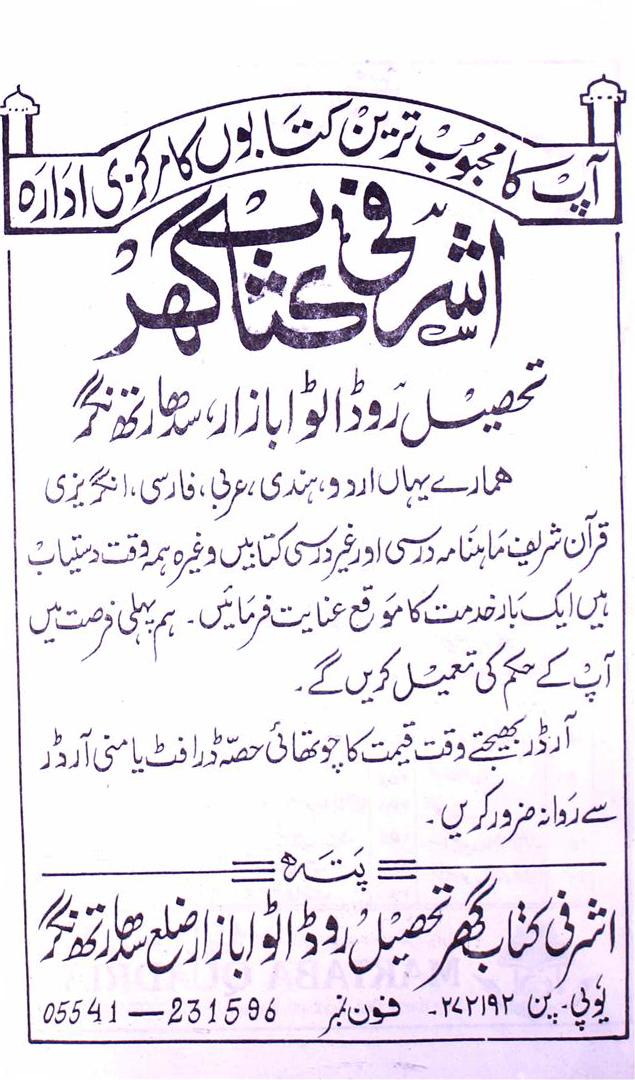 آپ کا محبوب ترین کتابوں کا مرکزی ادارہ
اشرفی کتاب گھر
تحصیل روڈ الوا بازار، سدھارتھ نگر
ھمارے یہاں اردو، ہندی، عربی، فارسی، انگریزی
قرآن شریف ماہنامہ درسی اور غیر درسی کتابیں وغیرہ ہمہ وقت دستیاب
ہیں ایک بار خدمت کا موقع عنایت فرمائیں۔ ہم پہلی فرصت میں
آپ کے حکم کی تعمیل کریں گے۔
آرڈر بھیجتے وقت قیمت کا چوتھائی حصّہ ڈرافٹ یا منی آرڈر
سے روانہ ضرور کریں۔
پتہ
اشرفی کتاب گھر تحصیل روڈ الوا بازار ضلع سدھارتھ نگر
یوپی۔ پن ۲۷۲۱۹۲۔ فون نمبر 05541—231596
MAKTABA QUADRI